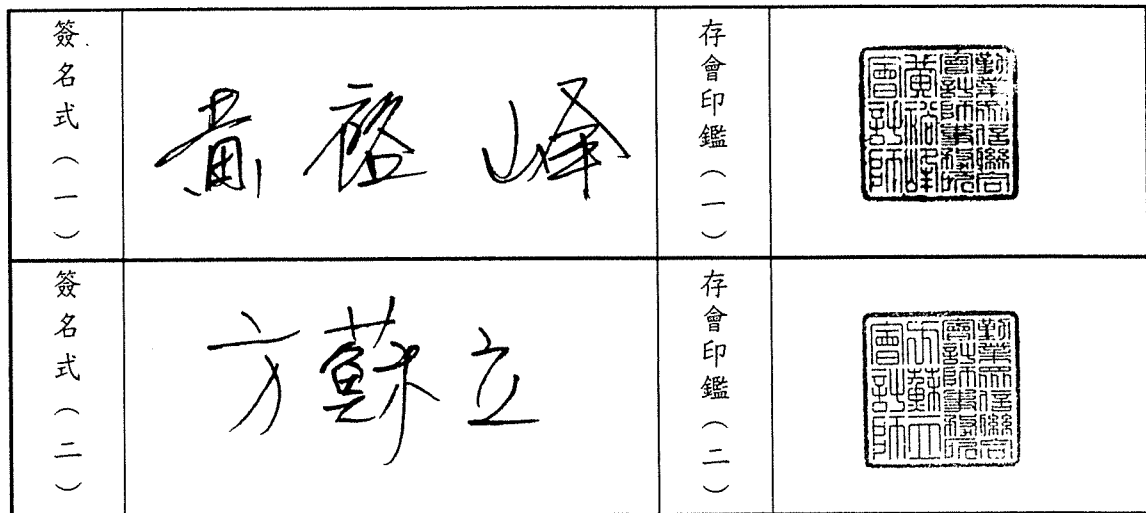 簽名式（一）
黃裕峰
存會印鑑（一）
勤業眾信聯合
會計師事務所
黃裕峰
會計師
簽名式（二）
方蘇立
存會印鑑（二）
勤業眾信聯合
會計師事務所
方蘇立
會計師